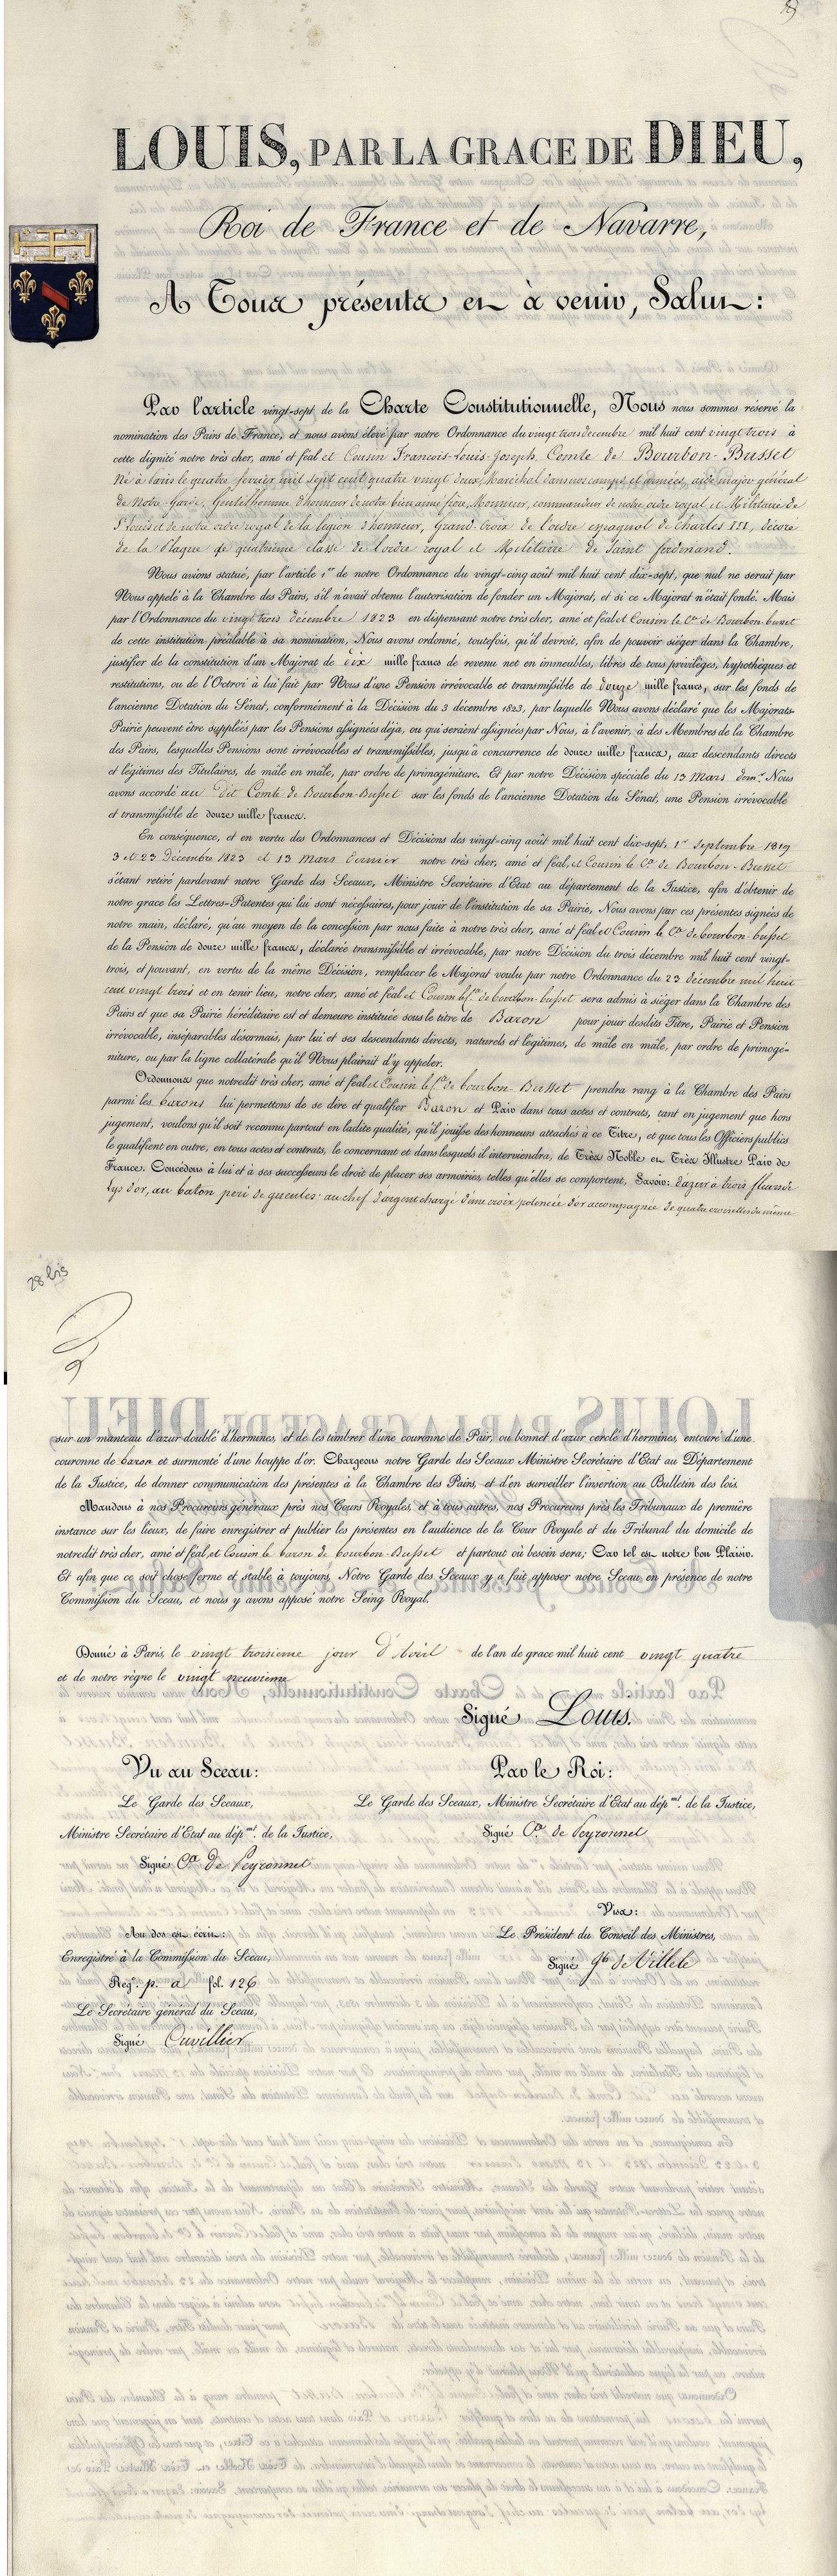 LOUIS, PAR LA GRACE DE DIEU,
Roi de France et de Navarre,
A Tous présents et à venir, Salut:
Par l'article vingt-sept de la Charte Constitutionnelle, Nous nous sommes réservé la
nomination des Pairs de France, et nous avons élevé par notre Ordonnance du vingt trois décembre mil huit cent vingt trois à
cette dignité notre très cher, amé et féal et Cousin François-Louis-Joseph, Comte de Bourbon-Busset
Né à Paris le quatre février mil sept cent quatre vingt deux, Maréchal dans nos camps et armées, aide major général
de Notre Garde, Gentilhomme d'honneur de notre bien aimé frère, Monsieur, commandeur de notre ordre royal et Militaire de
St Louis et de notre ordre royal de la légion d'honneur, Grand-Croix de l'ordre espagnol de Charles III, décoré
de la Plaque de quatrième classe de l'ordre royal et Militaire de Saint ferdinand.
Nous avions statué, par l'article 1er de notre Ordonnance du vingt-cinq août mil huit cent dix-sept, que nul ne serait par
Nous appelé à la Chambre des Pairs, s'il n'avait obtenu l'autorisation de fonder un Majorat, et si ce Majorat n'était fondé. Mais
par l'Ordonnance du vingt trois décembre 1823 en dispensant notre très cher, amé et féal et Cousin le Cte de Bourbon-busset
de cette institution préalable à sa nomination, Nous avons ordonné, toutefois, qu'il devroit, afin de pouvoir siéger dans la Chambre,
justifier de la constitution d'un Majorat de dix mille francs de revenu net en immeubles, libres de tous privilèges, hypothèques et
restitutions, ou de l'Octroi à lui fait par Nous d'une Pension irrévocable et transmissible de douze mille francs, sur les fonds de
l'ancienne Dotation du Sénat, conformément à la Décision du 3 décembre 1823, par laquelle Nous avons déclaré que les Majorats-
Pairie peuvent être suppléés par les Pensions assignées déja, ou qui seraient assignées par Nous, à l'avenir, à des Membres de la Chambre
des Pairs, lesquelles Pensions sont irrévocables et transmissibles, jusqu'à concurrence de douze mille francs, aux descendants directs
et légitimes des Titulaires, de mâle en mâle, par ordre de primogéniture. Et par notre Décision spéciale du 13 Mars dernr Nous
avons accordé au dit Comte de Bourbon-Busset sur les fonds de l'ancienne Dotation du Sénat, une Pension irrévocable
et transmissible de douze mille francs.
En conséquence, et en vertu des Ordonnances et Décisions des vingt-cinq août mil huit cent dix-sept, 1er Septembre 1819
3 et 23 Décembre 1823 et 13 Mars dernier notre très cher, amé et féal, et Cousin le Cte de Bourbon-Busset
s'étant retiré pardevant notre Garde des Sceaux, Ministre Secrétaire d'Etat au département de la Justice, afin d'obtenir de
notre grace les Lettres-Patentes qui lui sont nécessaires, pour jouir de l'institution de sa Pairie, Nous avons par ces présentes signées de
notre main, déclaré, qu'au moyen de la concession par nous faite à notre très cher, amé et féal et Cousin le Cte de bourbon-busset
de la Pension de douze mille francs, déclarée transmissible et irrévocable, par notre Décision du trois décembre mil huit cent vingt-
trois, et pouvant, en vertu de la même Décision, remplacer le Majorat voulu par notre Ordonnance du 23 décembre mil huit
cent vingt trois et en tenir lieu, notre cher, amé et féal et Cousin le Cte de bourbon-busset sera admis à siéger dans la Chambre des
Pairs et que sa Pairie héréditaire est et demeure instituée sous le titre de Baron pour jouir desdits Titre, Pairie et Pension
irrévocable, inséparables désormais, par lui et ses descendants directs, naturels et légitimes, de mâle en mâle, par ordre de primogé-
niture, ou par la ligne collatérale qu'il Nous plairait d'y appeler.
Ordonnons que notredit très cher, amé et féal et Cousin le Cte de bourbon-Busset prendra rang à la Chambre des Pairs
parmi les barons lui permettons de se dire et qualifier Baron et Pair dans tous actes et contrats, tant en jugement que hors
jugement, voulons qu'il soit reconnu partout en ladite qualité, qu'il jouisse des honneurs attachés à ce Titre, et que tous les Officiers publics
le qualifient en outre, en tous actes et contrats, le concernant et dans lesquels il interviendra, de Très Noble et Très Illustre Pair de
France. Concédons à lui et à ses successeurs le droit de placer ses armoiries, telles qu'elles se comportent, Savoir: d'azur à trois fleurs de
lys d'or, au baton péri de gueules: au chef d'argent chargé d'une croix potencée d'or accompagnée de quatre croisettes du même
28 bis
sur un manteau d'azur doublé d'hermines, et de les timbrer d'une couronne de Pair, ou bonnet d'azur cerclé d'hermines, entouré d'une
couronne de baron et surmonté d'une houppe d'or. Chargeons notre Garde des Sceaux Ministre Secrétaire d'Etat au Département
de la Justice, de donner communication des présentes à la Chambre des Pairs, et d'en surveiller l'insertion au Bulletin des lois.
Mandons à nos Procureurs généraux près nos Cours Royales, et à tous autres, nos Procureurs près les Tribunaux de première
instance sur les lieux, de faire enregistrer et publier les présentes en l'audience de la Cour Royale et du Tribunal du domicile de
notredit très cher, amé et féal, et Cousin le baron de bourbon-Busset et partout où besoin sera; Car tel est notre bon Plaisir.
Et afin que ce soit chose ferme et stable à toujours, Notre Garde des Sceaux y a fait apposer notre Sceau, en présence de notre
Commission du Sceau, et nous y avons apposé notre Seing Royal.
Donné à Paris, le vingt troisième jour d'Avril de l'an de grace mil huit cent vingt quatre
et de notre règne le vingt neuvième
Signé Louis.
Vu au Sceau:
Par le Roi:
Le Garde des Sceaux,
Le Garde des Sceaux, Ministre Secrétaire d'Etat au dépmt. de la Justice,
Ministre Secrétaire d'Etat au dépmt. de la Justice,
Signé Cte de Peyronnet
Signé Cte de Peyronnet
Visa:
Au dos est écrit:
Le Président du Conseil des Ministres,
Enregistré à la Commission du Sceau,
Signé Jh de Villele
Regre. p. a fol. 126
Le Secrétaire général du Sceau,
Signé Cuvillier